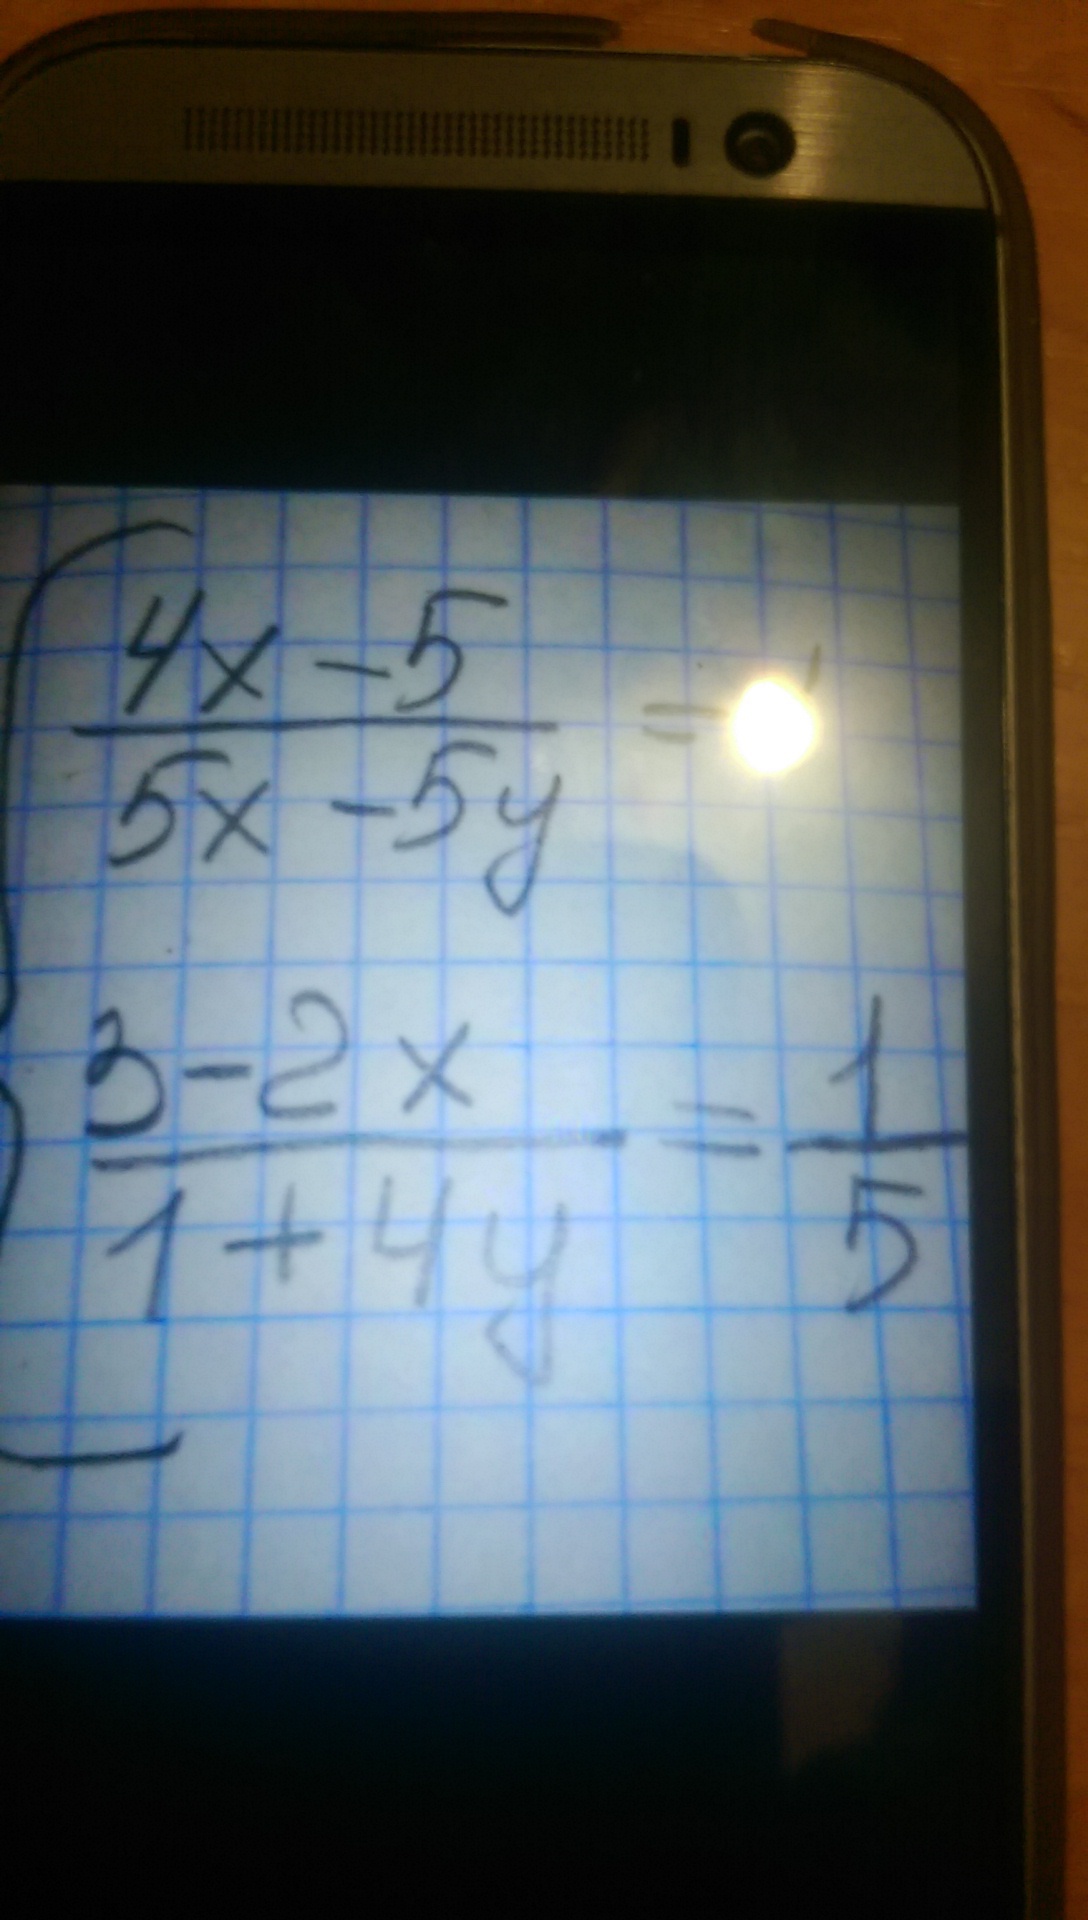 4x - 5
5x - 5y =
3 - 2x = 1
1 + 4y 5